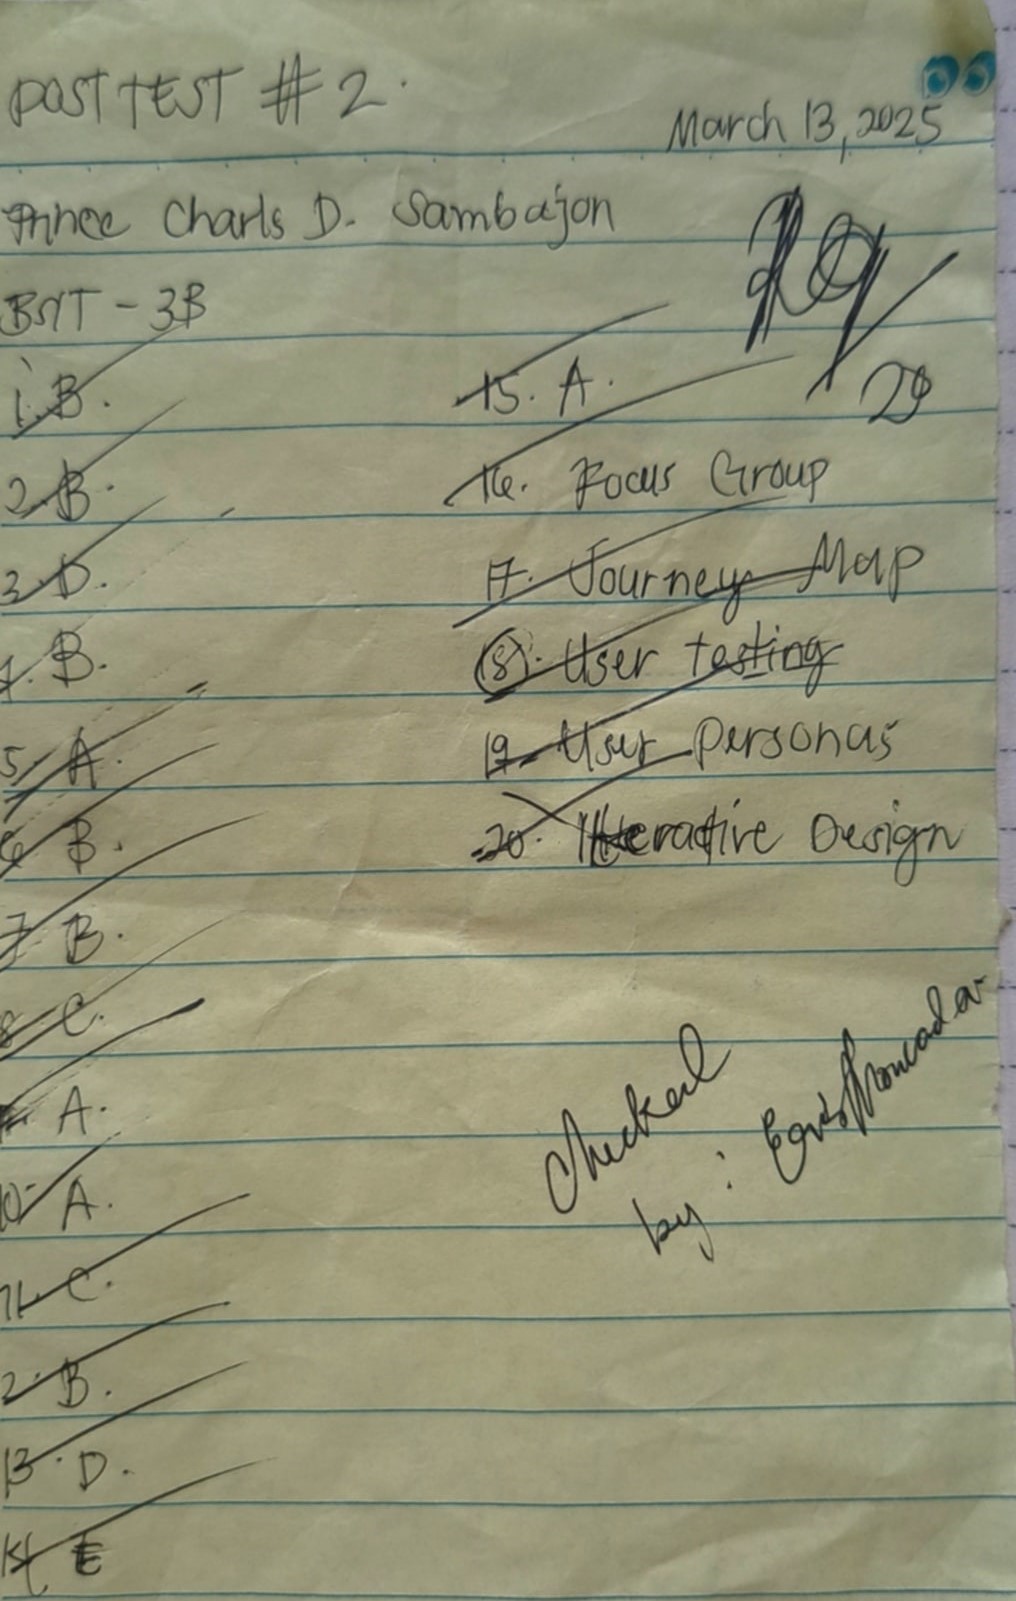 POST TEST # 2.
March 13, 2025
Prince Charls D. Sambajon
BSIT - 3B
1. B.
2. B.
3. D.
4. B.
5. A.
6 B.
7 B.
8 C.
A.
10. A.
11. C.
2. B.
13. D.
14 E
15. A.
16. Focus Group
17. Journey Map
18. User testing
19. User personas
20. Interactive Design
29
Checked
by: